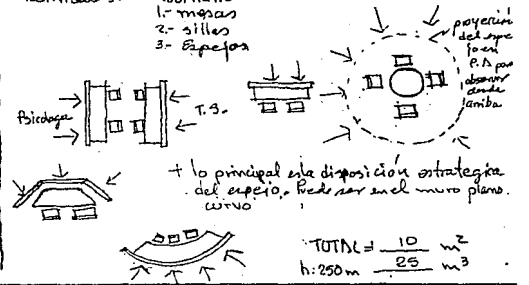 1.- mesas
2.- sillas
3.- Espejos
proyección
del espe
jo en
P.A para
observar
desde
arriba
Psicologa
T.S.
+ lo principal es la disposición estrategica
del espejo. Puede ser en el muro plano.
curvo
TOTAL = 10 m²
h: 250 m 25 m³